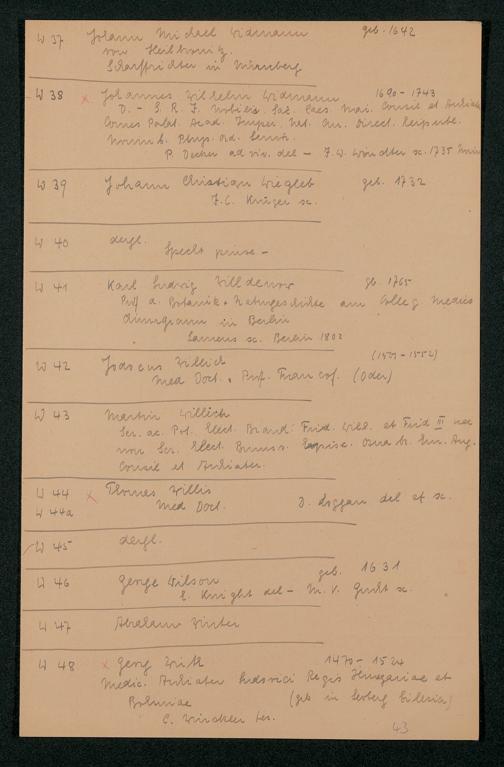 W 37 Johann Michael Widmann geb. 1642
von Heilbronn
Scharfrichter in Nürnberg
W 38 x Johannes Wilhelm Widmann 1690 - 1743
D. - S. R. I. Nobilis Sac. Caes. Mai. Consil et Archiater
Comes Palat. Acad. Imper. Nat. Cur. Direct. Reipubl.
Norimb. Phys. Ord. Senior.
P. Decker ad viv. del - J. W. Windter sc. 1735
W 39 Johann Christian Wiegleb geb. 1732
J. C. Krüger sc.
W 40 dergl.
Specht pinx -
W 41 Karl Ludwig Willdenow gb. 1765
Prof d. Botanik + Naturgeschichte am Colleg medico
chirurgicum in Berlin
Laurens sc. Berlin 1802
W 42 Jodocus Willich (1501 - 1552)
Med Doct. . Prof. Francof. (Oder)
W 43 Martin Willich
Ser. ac. Pot. Elect. Brand. Frid. Wilh. et Frid III nec
non Ser. Elect. Episc. Osnabr.
Consil et Archiater.
W 44 x Thomas Willis
W 44a Med Doct. D. Loggan del et sc.
W 45 dergl.
W 46 George Wilson geb. 1631
E. Knight del - M. V. Gucht sc.
W 47 Abraham Winter
W 48 x Georg Wirth 1470 - 1524
Medic. Archiater Ludovici Regis Hungariae et
Bohmiae (geb in Silesia)
C. Winckler fec.
43